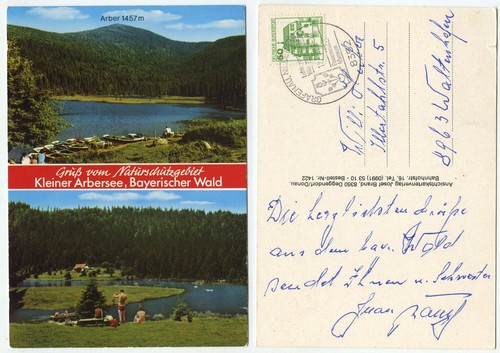 Arber 1457 m
Gruß vom Naturschutzgebiet
Kleiner Arbersee, Bayerischer Wald
60
GRAFENAU
Willi
Illertahlstr. 5
8963 Waltenhofen
Ansichtskartenverlag Josef Brand, 8360 Deggendorf/Donau,
Bahnhofstr. 16, Tel. (0991) 53 10 - Bestell-Nr. 1422
Die herzlichsten Grüße
aus dem bay. Wald
sendet Ihnen u. Schwester